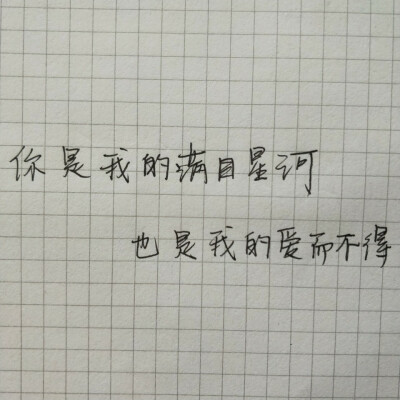 你是我的满目星河
也是我的爱而不得